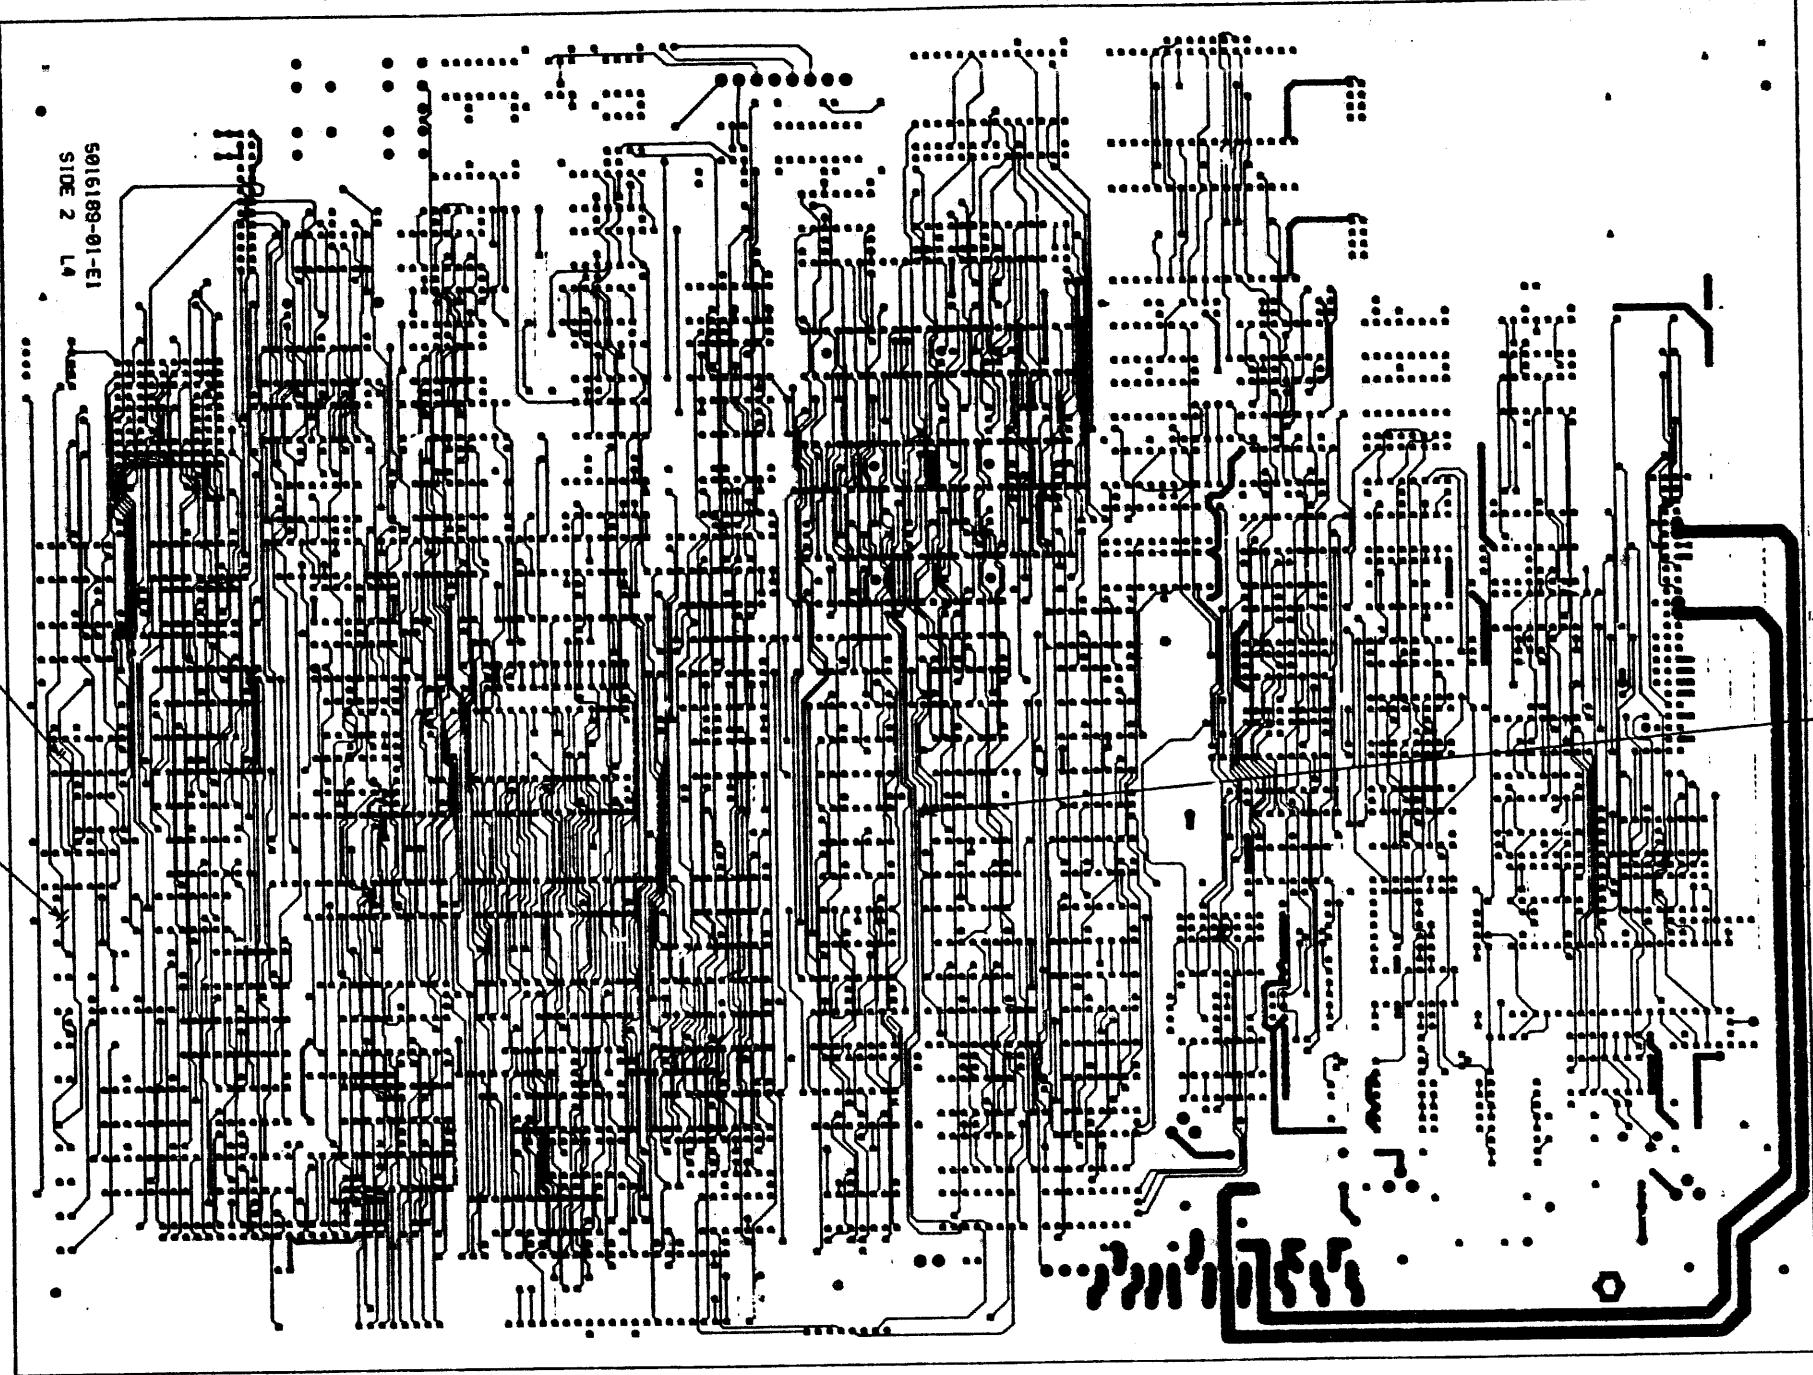 5016189-01-E1
SIDE 2 L4